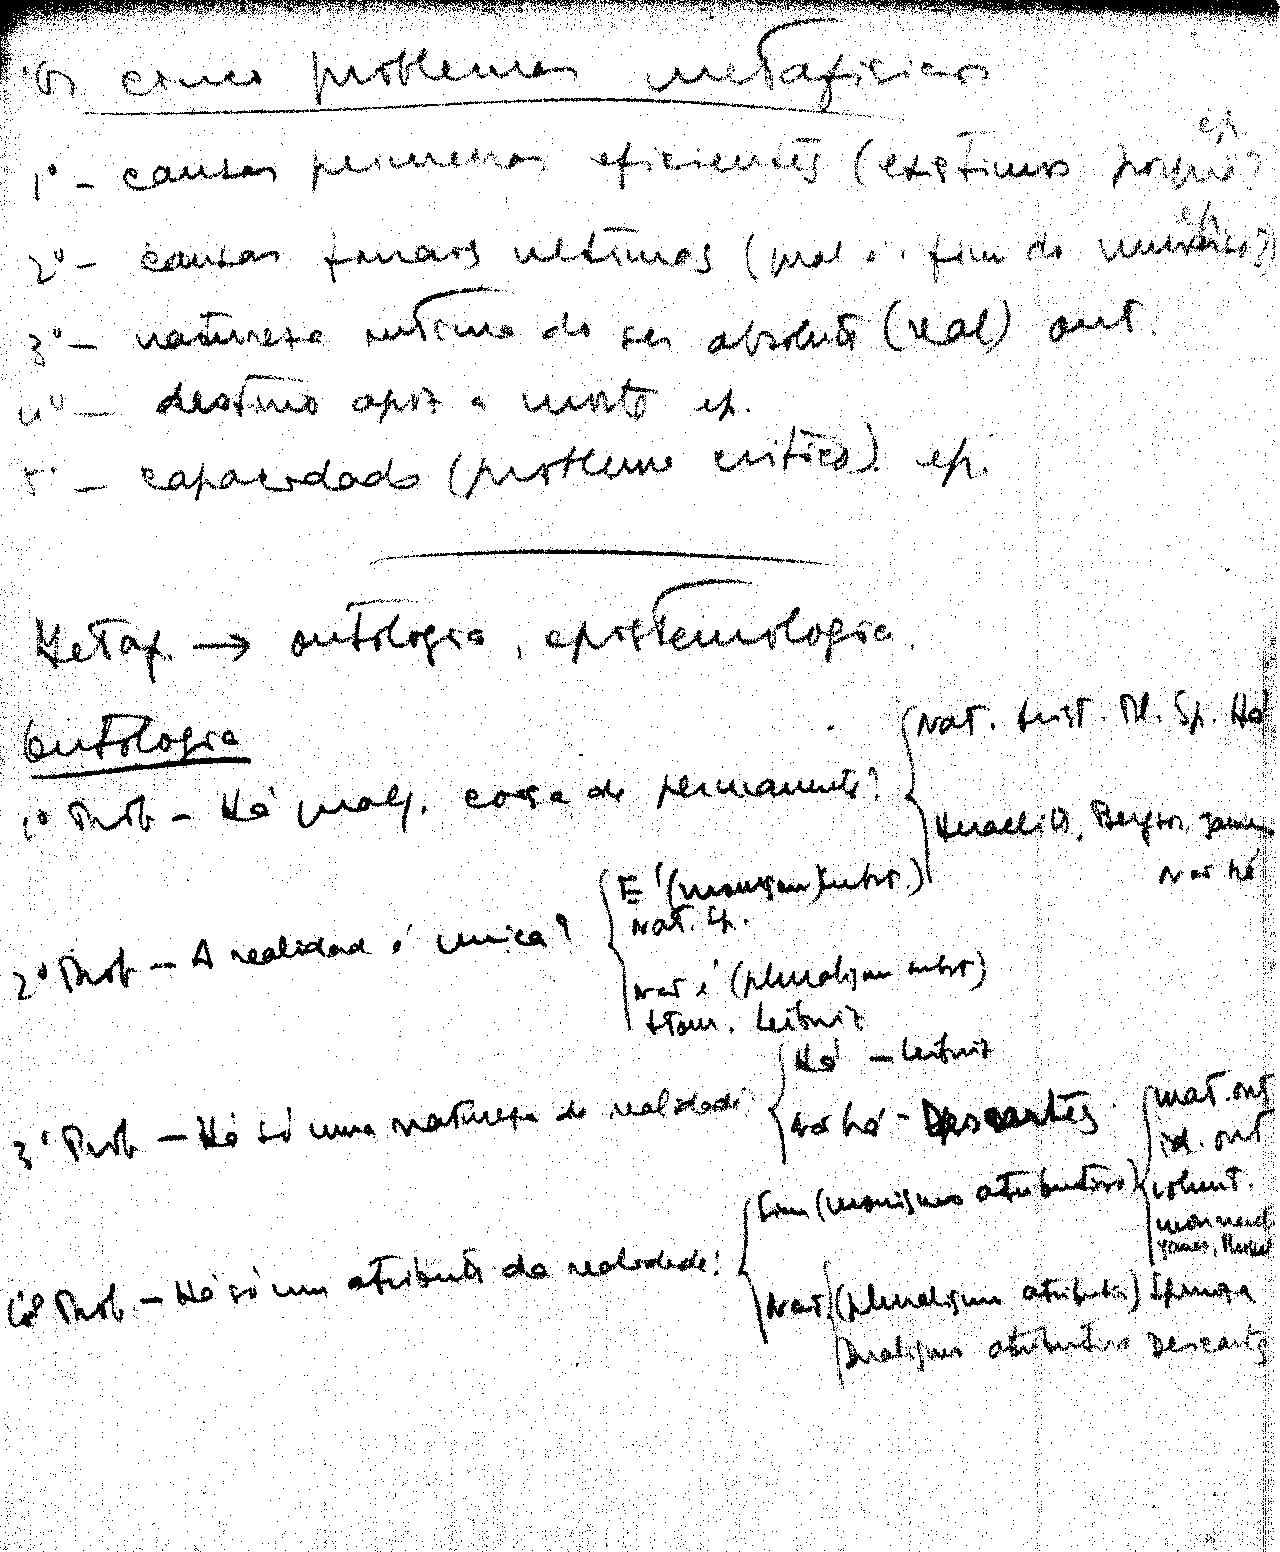 Os cinco problemas metafísicos
1º - causas primeiras eficientes (existimos porquê? ep.
2º - causas finais últimas (qual é o fim do universo?) ep.
3º - natureza íntima do ser absoluto (real) ont.
4º - destino após a morte ep.
5º - capacidade (problema crítico) ep.
Metaf. → ontologia, epistemologia.
Ontologia
1º Prob - Há qualq. coisa de permanente?
Nat. Arist. Pl. Sp. Há
Heraclito, Bergson, James
não há
2º Prob - A realidade é unica?
E' (monism subst.)
Mat. Sp.
não é (pluralism subst)
Atom. Leibniz
3º Prob - Há só uma natureza de realidade?
Há - Leibniz
não há - Descartes.
4º Prob. - Há só um atributo da realidade?
Sim (monismo atributivo)
mat. ont
id. ont
volunt.
mon. neut
James, Russel
Não (pluralism atributivo) Spinoza
Dualismo atributivo Descartes